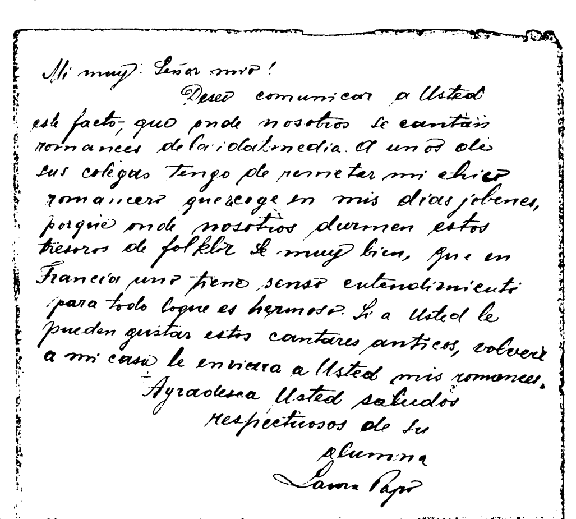 Mi muy Señor mio!
Deseo comunicar a Usted
este facto, que onde nosotros se cantan
romances de la idat media. A unos de
sus colegas tengo de remetar mi chico
romancero que escoge en mis dias jobenes,
porque onde nosotros durmen estos
tresoros de folklor. Se muy bien, que en
Francia uno tiene senso entendimiento
para todo loque es hermoso. Si a Usted le
pueden gustar estos cantares anticos, volvere
a mi casa le enviara a Usted mis romances.
Agradesca Usted saludos
respectuosos de su
alumna
Laura Papo